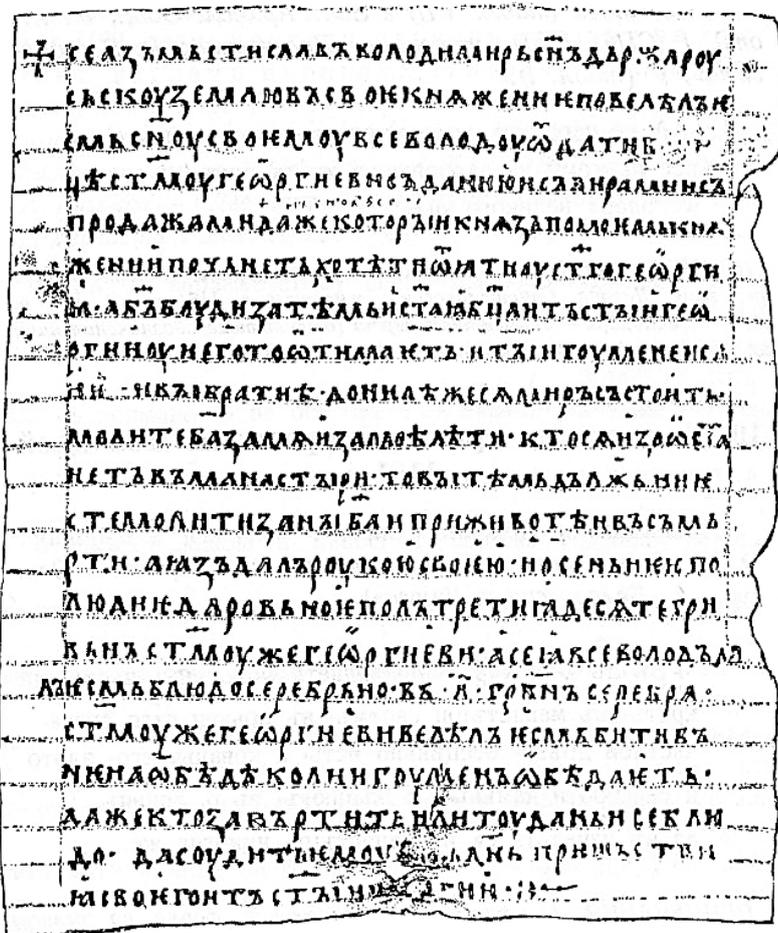 + СЕ АЗЪ МЬСТИСЛАВЪ ВОЛОДИМИРЬ СН҃Ъ ДЬРЖА РОУ
СЬСКОУ ЗЕМЛЮ ВЪ СВОѤ КНѦЖЕНИѤ ПОВЕЛѢЛЪ Ѥ
СМЬ СН҃ОУ СВОѤМОУ ВСЕВОЛОДОУ ѾДАТИ Б
ЦѢ СТ҃МОУ ГЕѠРГИЕВИ СЪ ДАНИЮ И СЪ ВИРАМИ И СЪ
ПРОДАЖАМИ ДАЖЕ КОТОРЫИ КНѦЗЬ ПО МОѤМЬ КНѦ
ЖЕНИИ ПОЧЬНЕТЬ ХОТѢТИ ѾѨТИ ОУ СТ҃ГО ГЕѠРГИ
Ꙗ · А БЪ҃ БОУДИ ЗА ТѢМЬ И СТ҃АꙖ БЦ҃А И ТЪ СТ҃ЫИ ГЕѠ
РГИИ ОУ НЕГО ТО ѾИМАѤТЬ · И ТЫ ИГОУМЕНЕ ИСА
ИѤ · И ВЫ БРАТИѢ · ДОНЕЛѢЖЕ СѦ МИРЪ СЪСТОИТЬ ·
МОЛИТЕ БА҃ ЗА МѦ И ЗА МОѢ ДѢТИ · КТО СѦ ИЗѠСТА
НЕТЬ ВЪ МАНАСТЫРИ · ТО ВЫ ТѢМЬ ДЪЛЖЬНИ Ѥ
СТЕ МОЛИТИ ЗА НЫ БА҃ И ПРИ ЖИВОТѢ И ВЪ СЪМЬ
РТИ · А ꙖЗЪ ДАЛЪ РОУКОЮ СВОѤЮ · И ОСЕНЬНѤѤ ПО
ЛЮДИѤ ДАРОВЬНОѤ ПОЛЪТРЕТИꙖДЕСѦТЕ ГРИ
ВЬНЪ СТ҃МОУ ЖЕ ГЕѠРГИЕВИ · А СЕ Ꙗ ВСЕВОЛОДЪ ДА
ЛЪ ѤСМЬ БЛЮДО СЕРЕБРЬНО · ВЪ · Л҃ · ГРВ҃НЪ СЕРЕБРА ·
СТ҃МОУ ЖЕ ГЕѠРГИЕВИ ВЕЛѢЛЪ ѤСМЬ БИТИ ВЪ
НѤ НА ѠБѢДѢ КОЛИ ИГОУМЕНЪ ѠБѢДАѤТЬ ·
ДАЖЕ КТО ЗАПЪРТИТЬ ИЛИ ТОУ ДАНЬ И СЕ БЛЮ
ДО · ДА СОУДИТЬ ѤМОУ ДН҃Ь ПРИШЬСТВИ
Ꙗ СВОѤГО И ТЪ СТ҃ЫИ